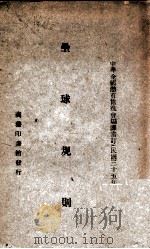 中華全國體育協進會編譯審訂(民國二十五年
壘球規則
商務印書館發行